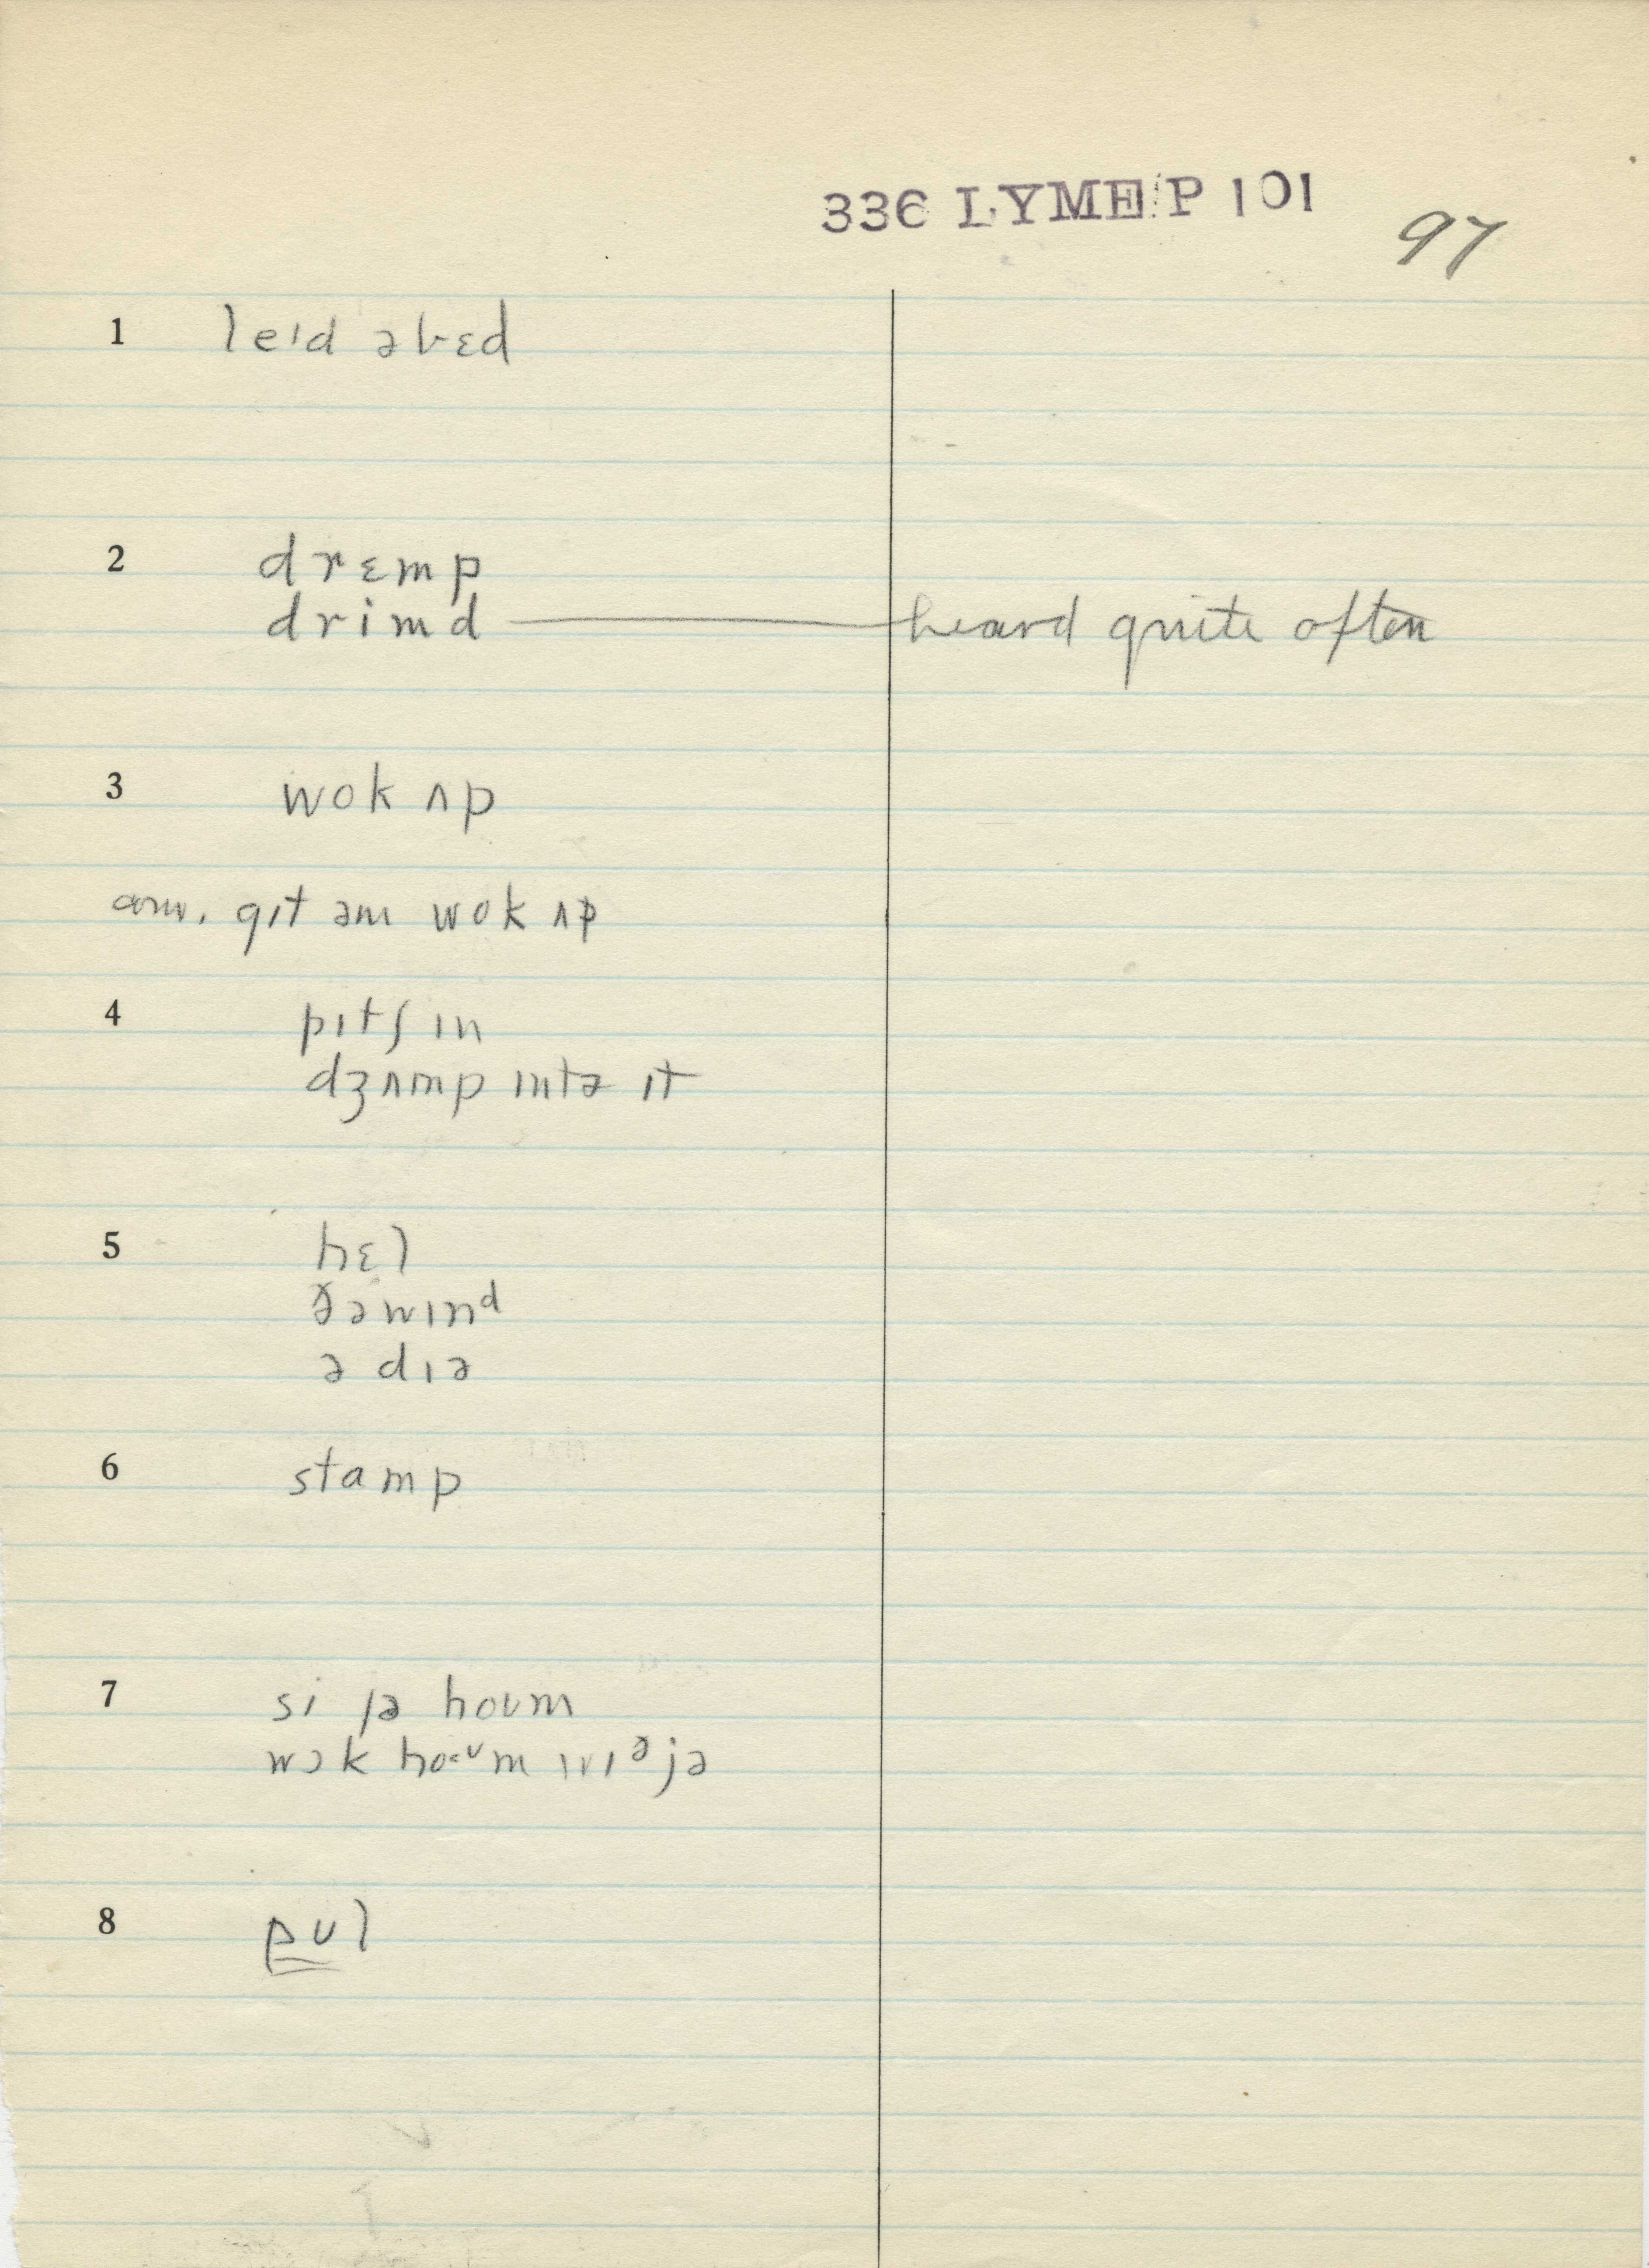 336 LYME P 101
97
1 leɪd əbɛd
2 drɛmp
drimd — heard quite often
3 wok ʌp
gɪt əm wok ʌp
4 pɪtʃ ɪn
dʒʌmp ɪntə ɪt
5 hɛl
ðəwɪnᵈ
ə dɪə
6 stamp
7 si jə hoʊm
wɔk hoʊm wɪᶞjə
8 pʊl